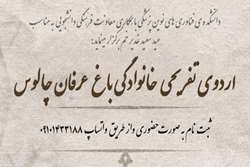 دانشکده فناوری های نوین پزشکی با همکاری معاونت فرهنگی دانشجویی به مناسبت
عید سعید غدیر خم برگزار می‌نماید:
اردوی تفریحی خانوادگی باغ عرفان چالوس
ثبت نام به صورت حضوری و از طریق واتساپ ۰۹۱۰۱۴۳۳۱۸۸